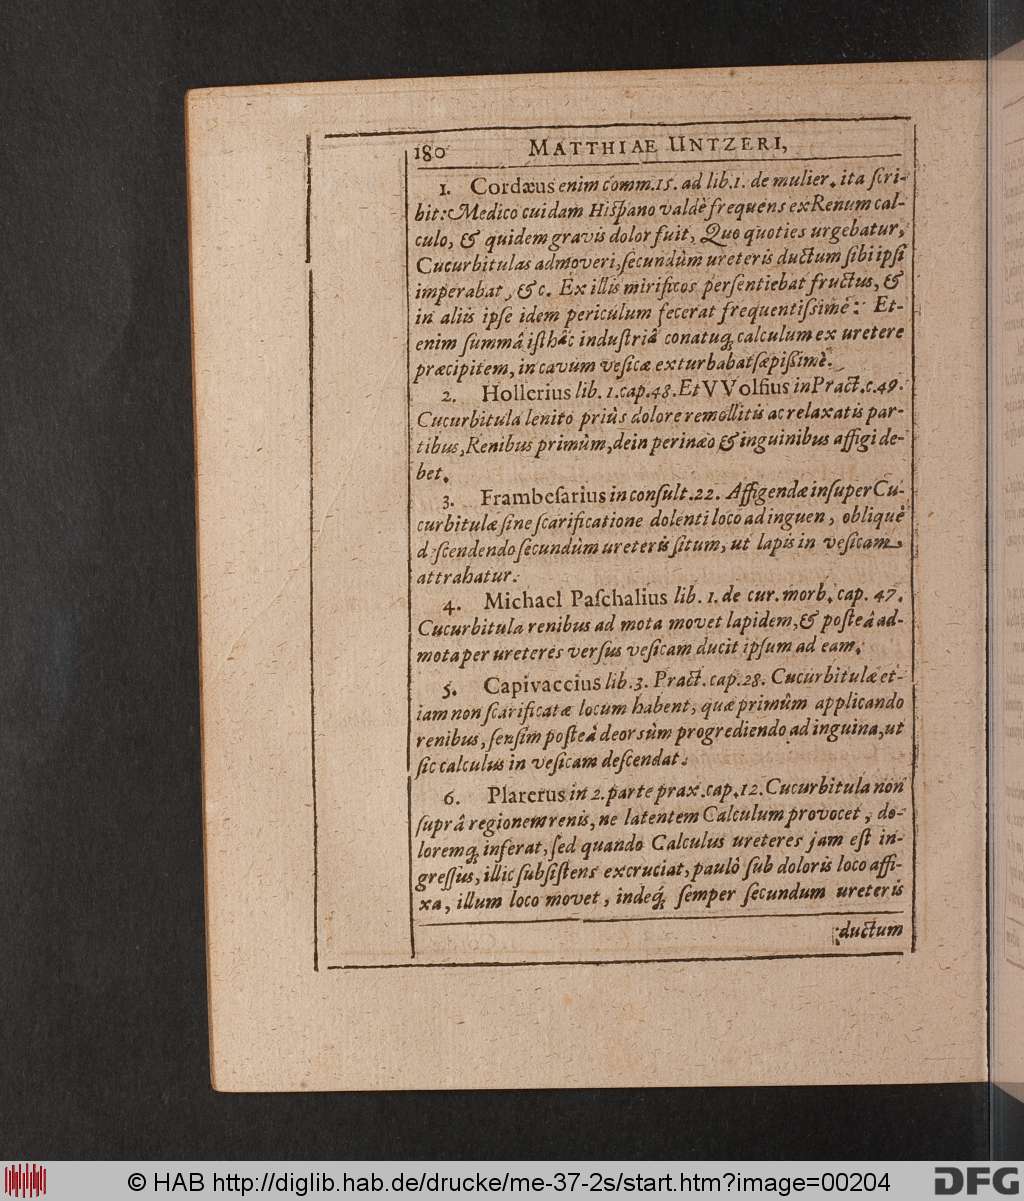 180 MATTHIAE UNTZERI,
1. Cordæus enim comm.15. ad lib.1. de mulier. ita ſcri-
bit: Medico cuidam Hiſpano valdè frequens ex Renum cal-
culo, & quidem gravis dolor fuit, Quo quoties urgebatur,
Cucurbitulas admoveri, ſecundùm ureteris ductum ſibi ipſi
imperabat, &c. Ex illis mirificos perſentiebat fructus, &
in aliis ipſe idem periculum fecerat frequentiſsimè: Et-
enim ſummâ iſthâc induſtriâ conatuq; calculum ex uretere
præcipitem, in cavum veſicæ exturbabat ſæpiſſimè.
2. Hollerius lib. 1. cap. 48. Et VVolfius in Pract. c. 49.
Cucurbitula lenito priùs dolore remollitis ac relaxatis par-
tibus, Renibus primùm, dein perinæo & inguinibus affigi de-
bet.
3. Frambeſarius in conſult. 22. Affigendæ inſuper Cu-
curbitulæ ſine ſcarificatione dolenti loco ad inguen, obliquè
deſcendendo ſecundùm ureteris ſitum, ut lapis in veſicam
attrahatur.
4. Michael Paſchalius lib. 1. de cur. morb. cap. 47.
Cucurbitula renibus ad mota movet lapidem, & poſteâ ad-
mota per ureteres verſus veſicam ducit ipſum ad eam.
5. Capivaccius lib. 3. Pract. cap. 28. Cucurbitulæ et-
iam non ſcarificatæ locum habent, quæ primûm applicando
renibus, ſenſim poſteâ deorsùm progrediendo ad inguina, ut
ſic calculus in veſicam deſcendat.
6. Platerus in 2. parte prax. cap. 12. Cucurbitula non
ſuprâ regionem renis, ne latentem Calculum provocet, do-
loremq; inferat, ſed quando Calculus ureteres jam eſt in-
greſſus, illic ſubſiſtens excruciat, paulô ſub doloris loco affi-
xa, illum loco movet, indeq; ſemper ſecundum ureteris
ductum
© HAB http://diglib.hab.de/drucke/me-37-2s/start.htm?image=00204
DFG